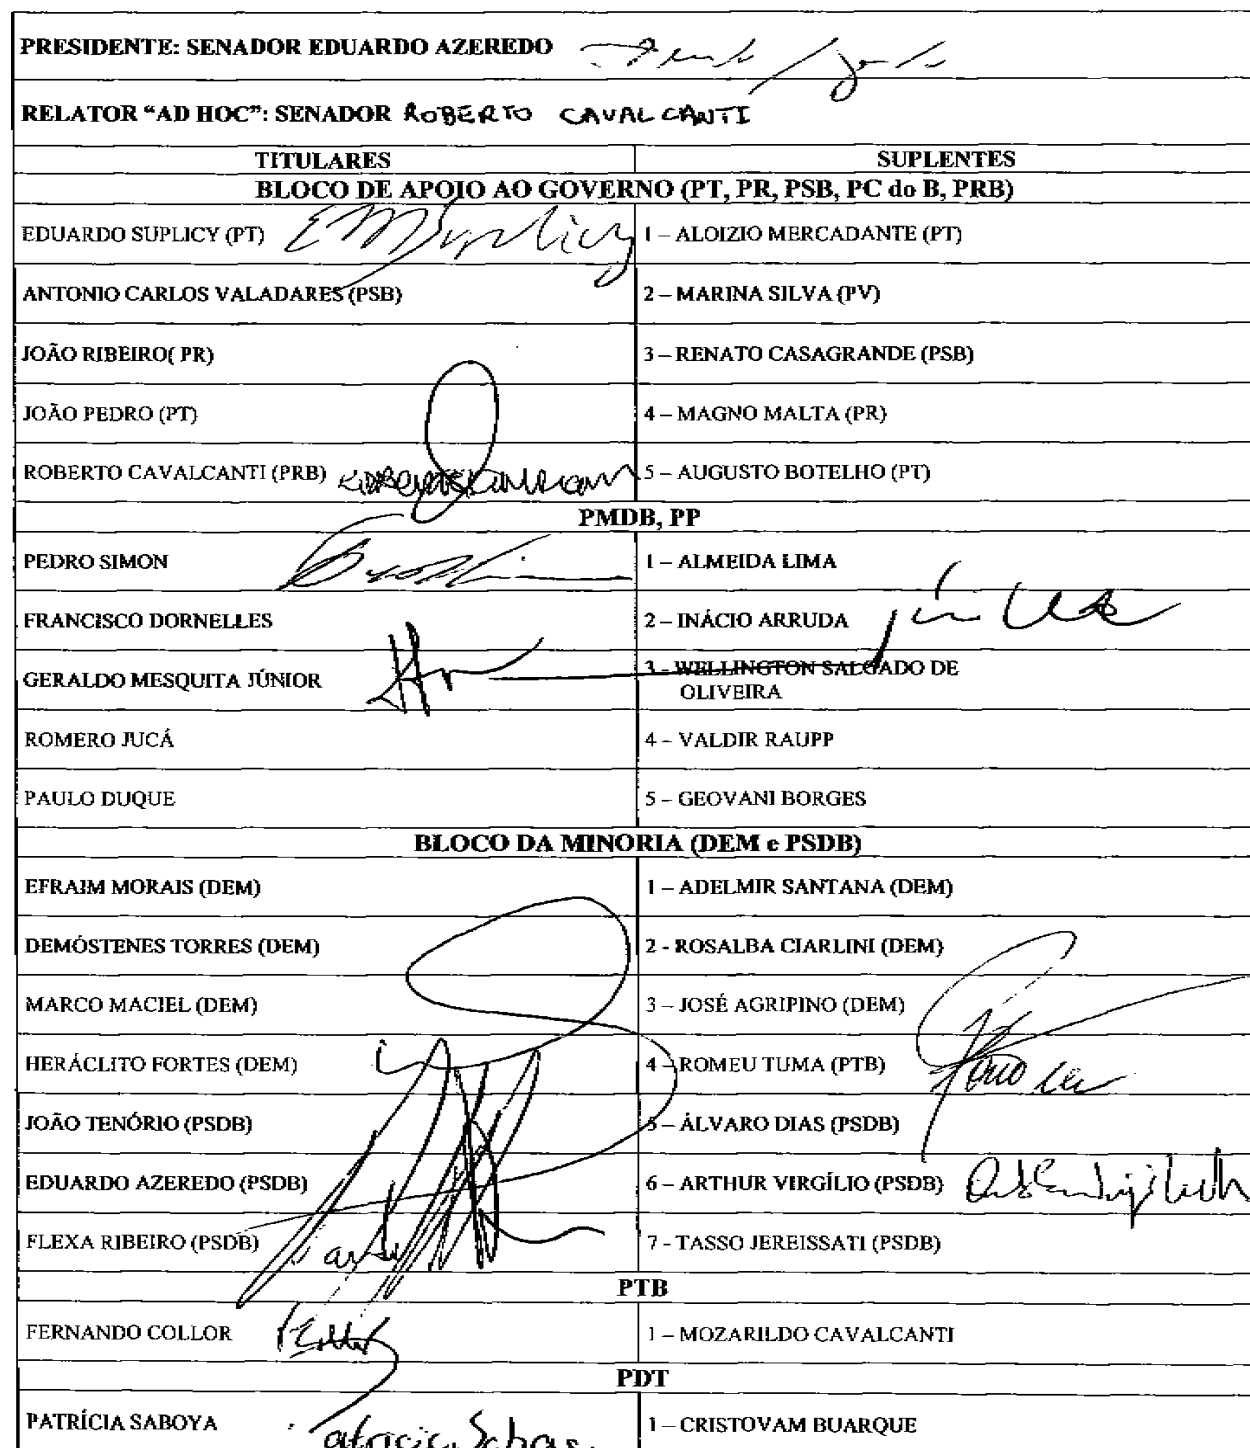 PRESIDENTE: SENADOR EDUARDO AZEREDO
RELATOR “AD HOC”: SENADOR ROBERTO CAVALCANTI
TITULARES SUPLENTES
BLOCO DE APOIO AO GOVERNO (PT, PR, PSB, PC do B, PRB)
EDUARDO SUPLICY (PT) EMSuplicy 1 – ALOIZIO MERCADANTE (PT)
ANTONIO CARLOS VALADARES (PSB) 2 – MARINA SILVA (PV)
JOÃO RIBEIRO( PR) 3 – RENATO CASAGRANDE (PSB)
JOÃO PEDRO (PT) 4 – MAGNO MALTA (PR)
ROBERTO CAVALCANTI (PRB) 5 – AUGUSTO BOTELHO (PT)
PMDB, PP
PEDRO SIMON 1 – ALMEIDA LIMA
FRANCISCO DORNELLES 2 – INÁCIO ARRUDA
GERALDO MESQUITA JÚNIOR 3 - WELLINGTON SALGADO DE
OLIVEIRA
ROMERO JUCÁ 4 – VALDIR RAUPP
PAULO DUQUE 5 – GEOVANI BORGES
BLOCO DA MINORIA (DEM e PSDB)
EFRAIM MORAIS (DEM) 1 – ADELMIR SANTANA (DEM)
DEMÓSTENES TORRES (DEM) 2 - ROSALBA CIARLINI (DEM)
MARCO MACIEL (DEM) 3 – JOSÉ AGRIPINO (DEM)
HERÁCLITO FORTES (DEM) 4 – ROMEU TUMA (PTB)
JOÃO TENÓRIO (PSDB) 5 – ÁLVARO DIAS (PSDB)
EDUARDO AZEREDO (PSDB) 6 – ARTHUR VIRGÍLIO (PSDB)
FLEXA RIBEIRO (PSDB) 7 - TASSO JEREISSATI (PSDB)
PTB
FERNANDO COLLOR 1 – MOZARILDO CAVALCANTI
PDT
PATRÍCIA SABOYA Patricia Saboya 1 – CRISTOVAM BUARQUE